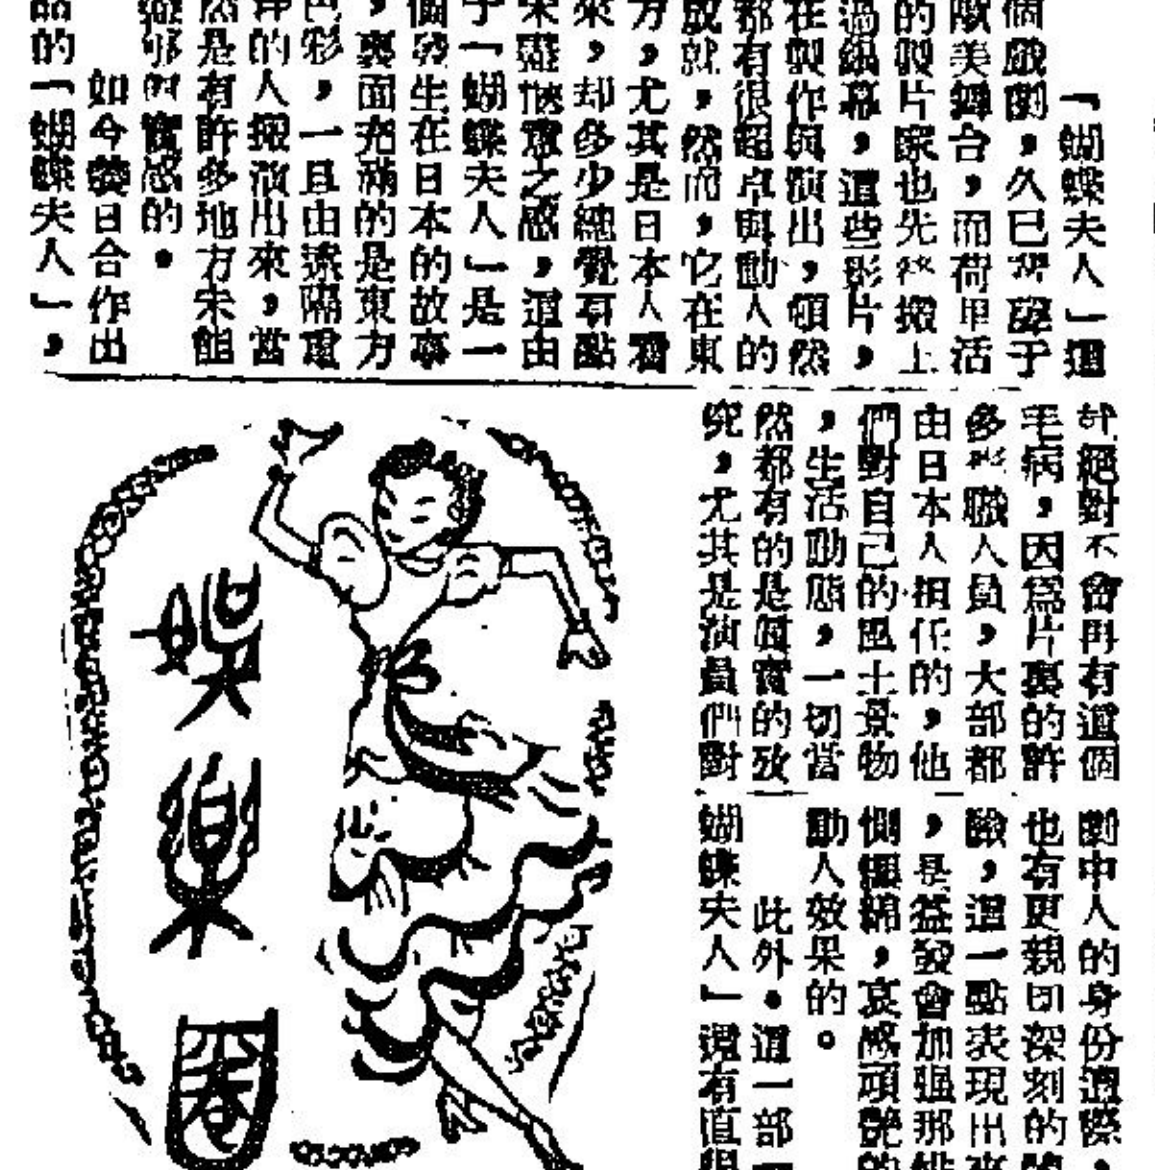 「蝴蝶夫人」這
個戲劇,久已譽于
歐美舞台,而荷里活
的製片家也先後搬上
過銀幕,這些影片,
在製作與演出,然
都有很超卓與動人的
成就,然而,它在東
方,尤其是日本人看
來,却多少總覺有點
未盡愜意之感,這由
于「蝴蝶夫人」是一
個發生在日本的故事
,裏面充滿的是東方
色彩,一旦由遠隔重
洋的人搬演出來,當
然是有許多地方未能
够實感的。
如今義日合作出
品的「蝴蝶夫人」,
絕對不會再有這個
毛病,因爲片裏的許
多職人員,大部都
由日本人担任的,他
們對自己的風土景物
,生活動態,一切當
然都有的是眞實的攷
究,尤其是演員們對
劇中人的身份遭際,
也有更親切深刻的體
驗,這一點表現出來
,是益發會加强那悱
惻纏綿,哀感頑艷的
動人效果的。
此外。這一部「
蝴蝶夫人」還有值得
娛樂圈